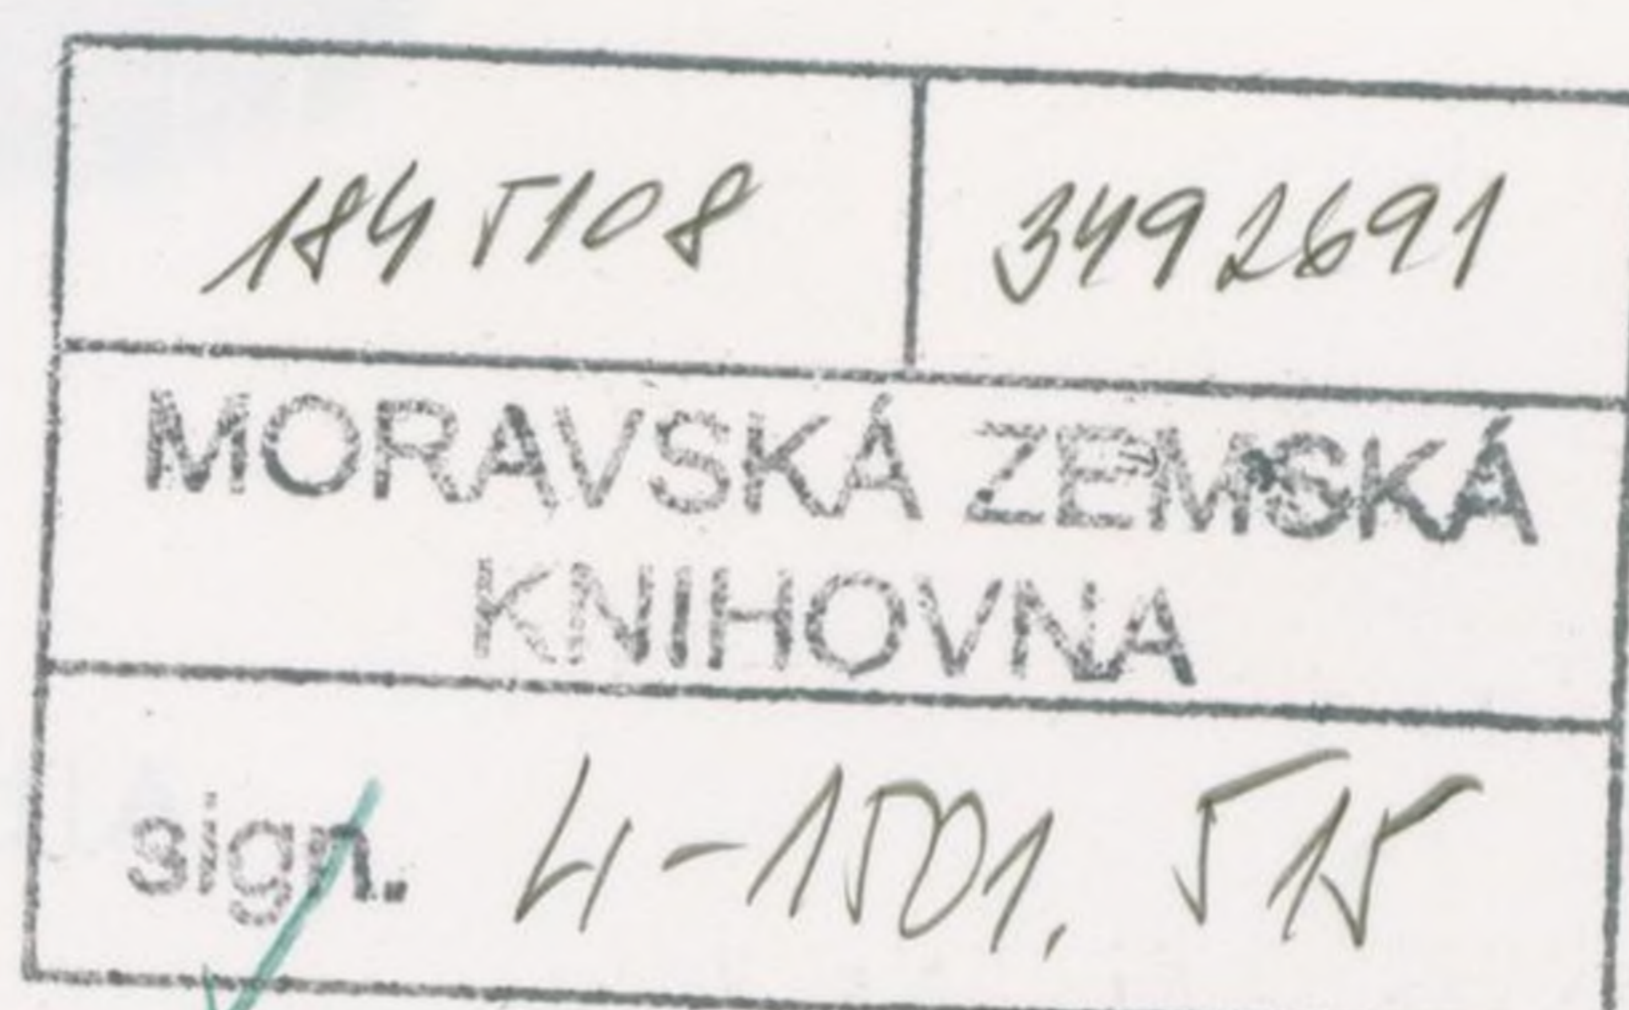 1845108 3492691
MORAVSKÁ ZEMSKÁ
KNIHOVNA
sign. 4-1501.515